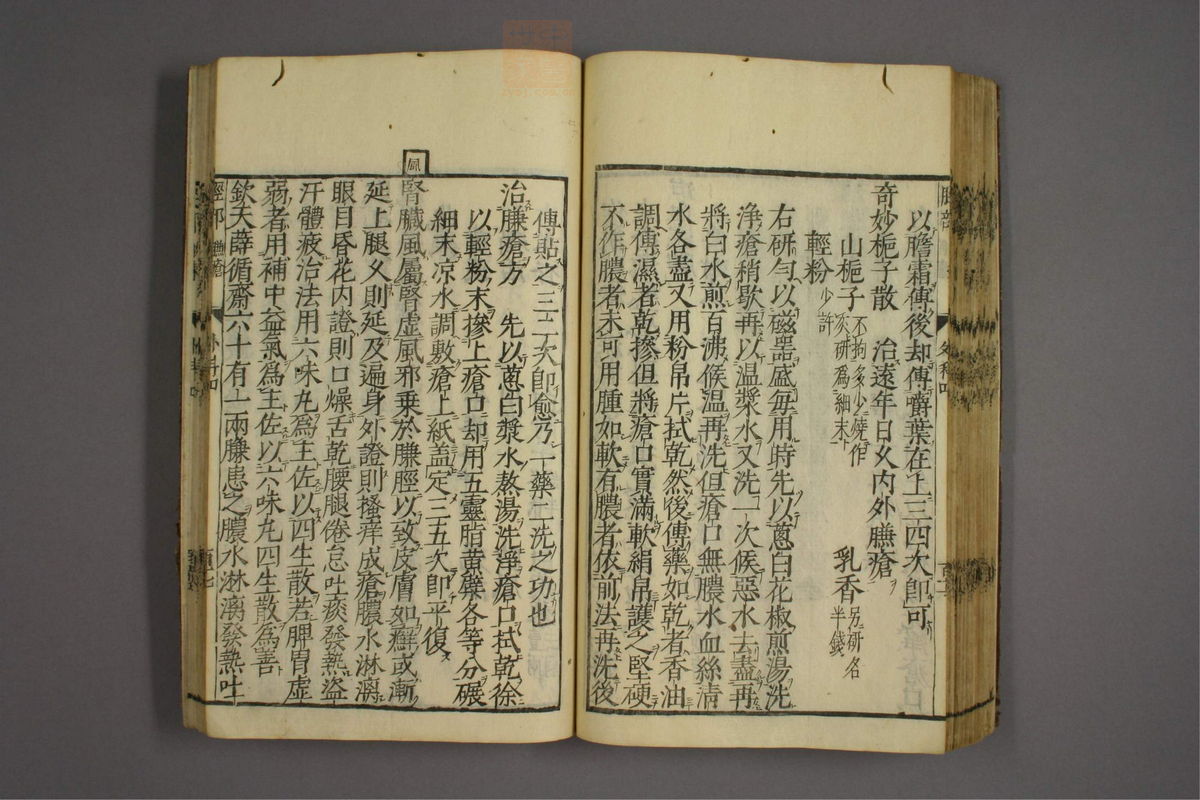 以膽霜傅後却傅嚼葉在上三四次即可
奇妙梔子散 治遠年日久内外臁瘡
山梔子 不拘多少燒作灰研爲細末 乳香 另研各半錢
輕粉 少許
右研勻以磁器盛每用時先以蔥白花椒煎湯洗
净瘡稍歇再以温漿水又洗一次候惡水去盡再
將白水煎百沸候温再洗但瘡口無膿水血絲清
水各盡又用粉帛片拭乾然後傅藥如乾者香油
調傅濕者乾摻但將瘡口實滿軟絹帛護之堅硬
不作膿者未可用腫如軟有膿者依前法再洗後
傅貼之三二次即愈乃一藥二洗之功也
治臁瘡方 先以蔥白漿水熬湯洗淨瘡口拭乾徐
以輕粉末摻上瘡口却用五靈脂黄蘗各等分碾
細末凉水調敷瘡上紙盖定三五次即平復
風
腎臟風屬腎虛風邪乘於臁脛以致皮膚如癬或漸
延上腿久則延及遍身外證則搔痒成瘡膿水淋漓
眼目昏花内證則口燥舌乾腰腿倦怠吐痰發熱盗
汗體疲治法用六味丸爲主佐以四生散若脾胃虛
弱者用補中益氣爲主佐以六味丸四生散爲善
欽天薛循齋六十有一兩臁患之膿水淋漓發熱吐